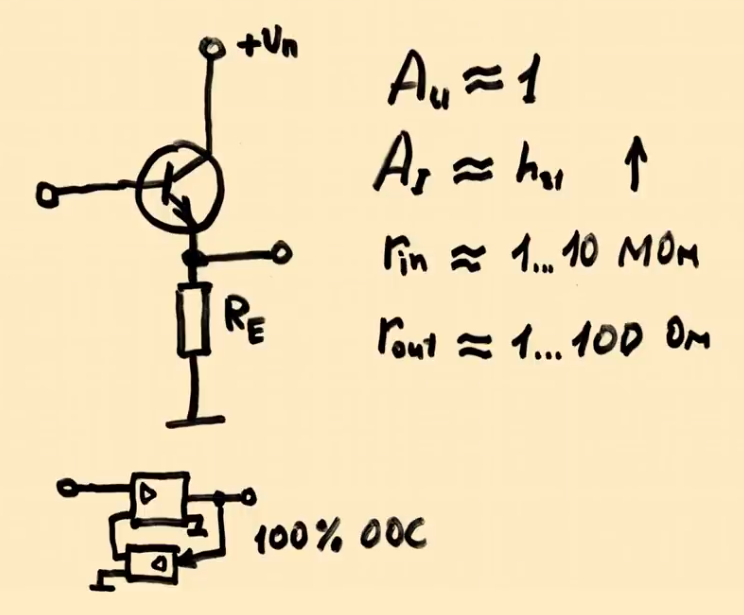 +Uп
Aᵤ ≈ 1
A_I ≈ h₂₁ ↑
r_in ≈ 1...10 МОм
R_E
r_out ≈ 1...100 Ом
100% ООС